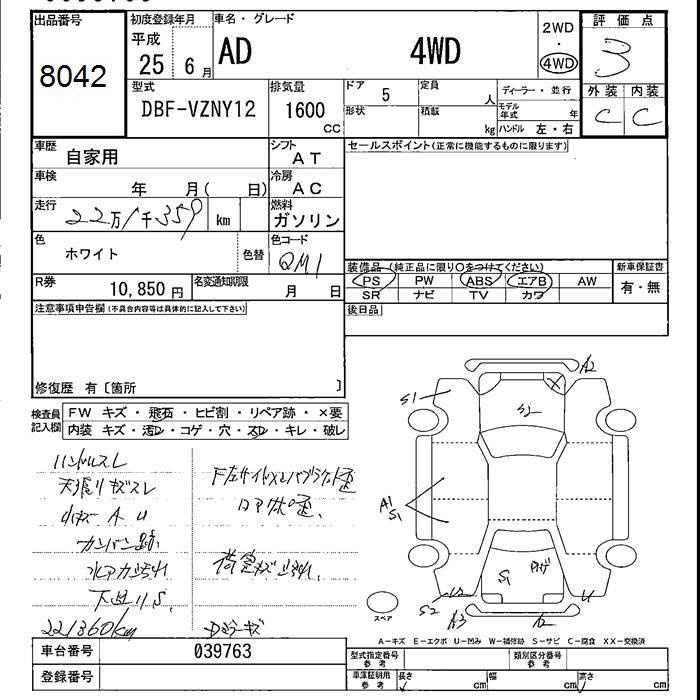 出品番号
8042
初度登録年月
平成
25 6月
車名・グレード
AD 4WD
2WD
・
4WD
評価点
3
外装 内装
C C
型式
DBF-VZNY12
排気量
1600
CC
ドア 5
定員 人
形状
積載 kg
ディーラー・並行
モデル年式 年
ハンドル 左・右
車歴 自家用
シフト AT
セールスポイント(正常に機能するものに限ります)
車検 年 月( 日)
冷房 AC
走行 22万1千359 km
燃料 ガソリン
色 ホワイト
色替
色コード QM1
装備品(純正品に限り○をつけてください)
新車保証書
PS PW ABS エアB AW
有・無
SR ナビ TV カワ
R券 10,850円
名変通知期限 月 日
後日品
注意事項申告欄(不具合内容等は具体的に記入して下さい)
修復歴 有〔箇所 〕
検査員記入欄
FW キズ・飛石・ヒビ割・リペア跡・×要
内装 キズ・汚レ・コゲ・穴・スレ・キレ・破レ
ハンドルスレ
天張りキズスレ
小キズ A U
カンバン跡
下廻りS.
221360km
荷室キズ
Dミラーキズ
A2
S1
S2
A1
S1
S1
U
S2
A3
A2
スペア
A-キズ E-エクボ U-凹み W-補修跡 S-サビ C-腐食 XX-交換済
車台番号 039763
登録番号
型式指定番号 参考
類別区分番号 参考
車庫証明用 参考
長さ cm
幅 cm
高さ cm